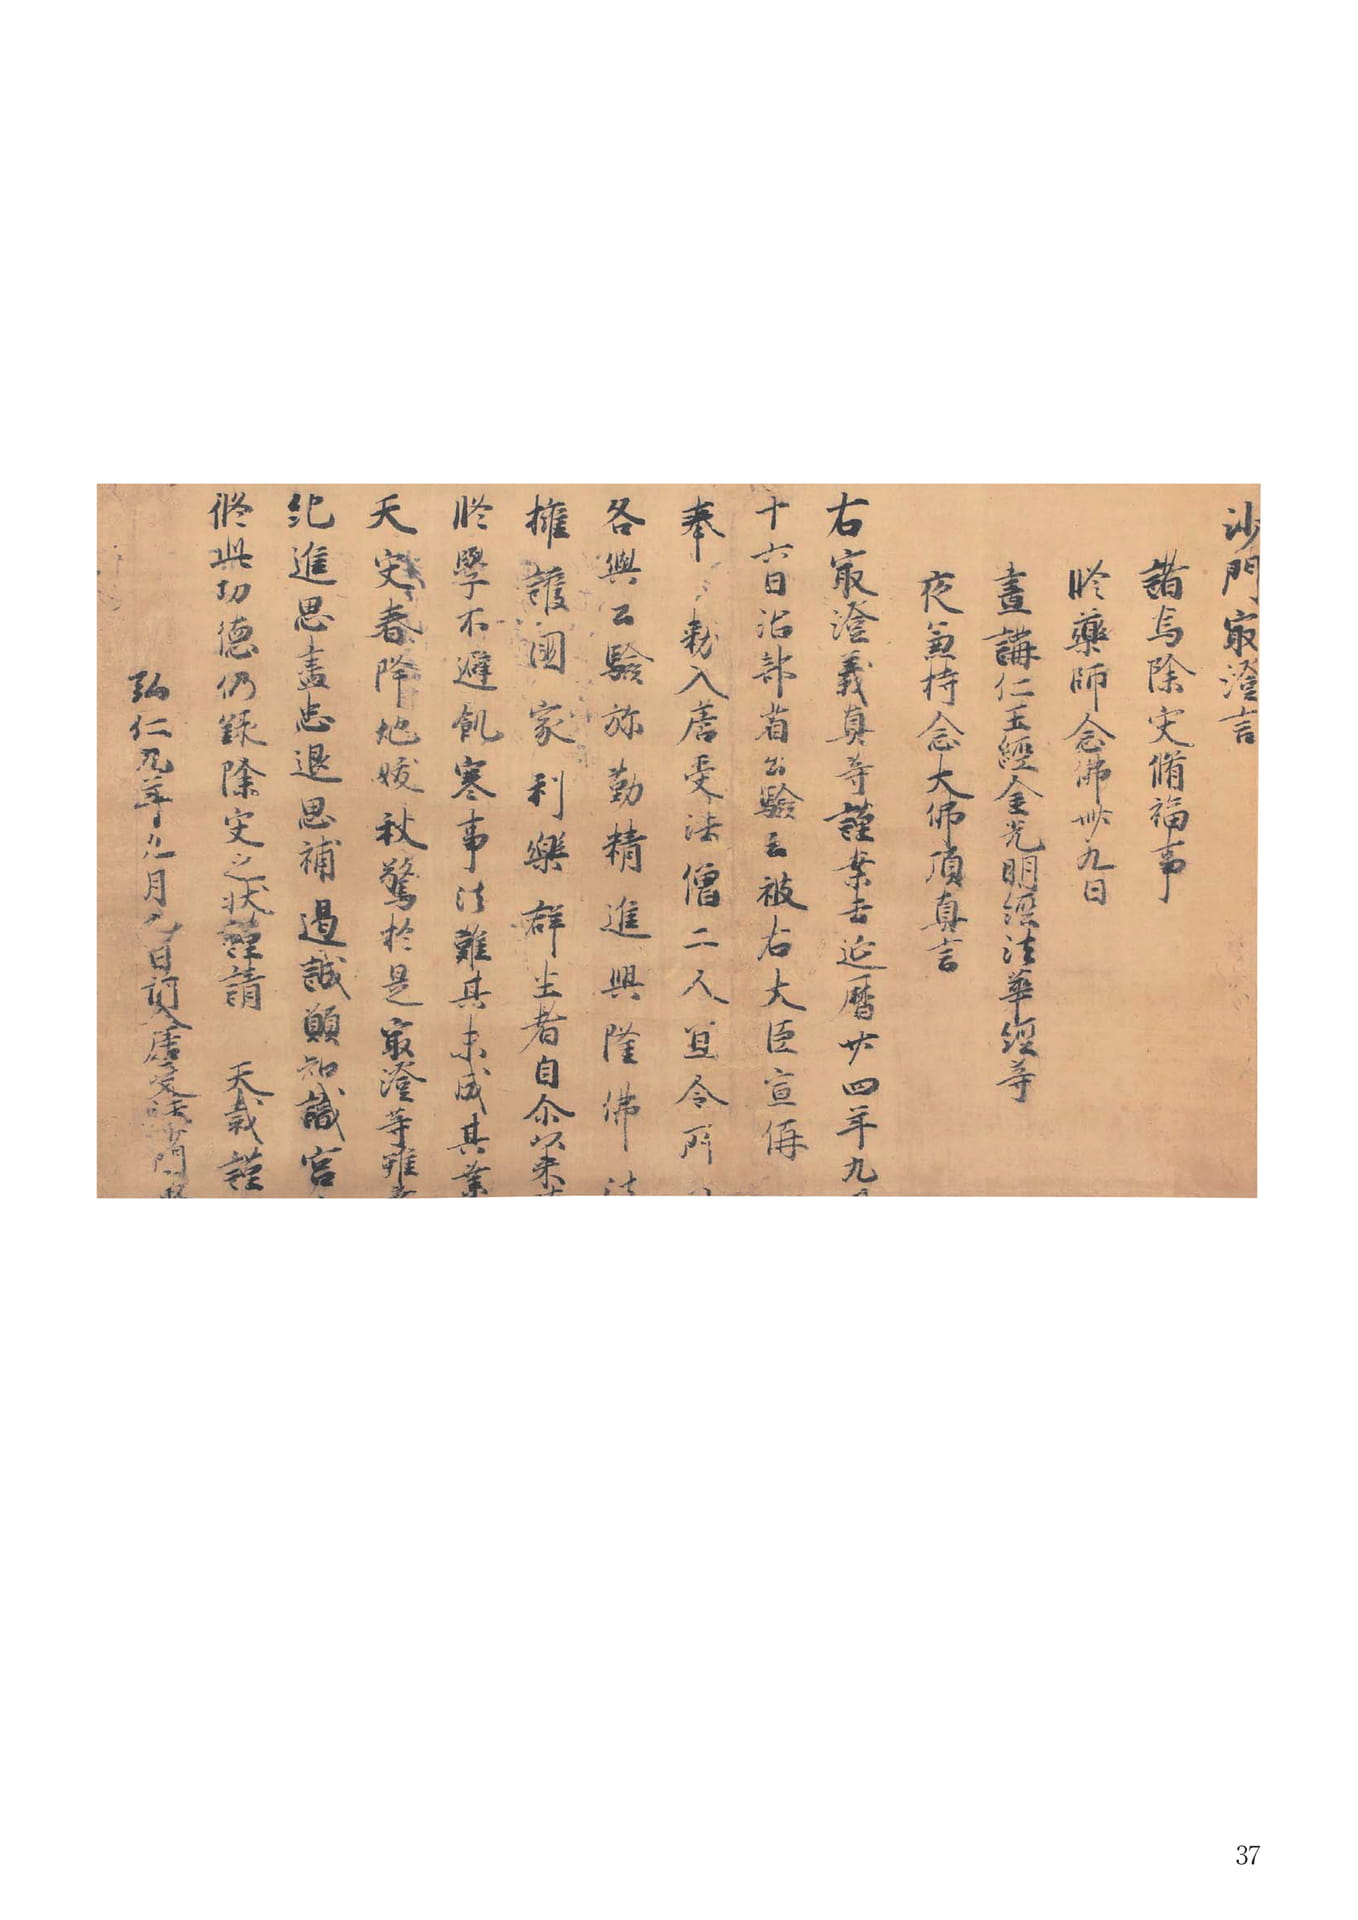 沙門冣澄言
請爲除灾脩福事
修藥師念佛卌九日
晝講仁王經金光明經法華經等
夜兼持念大佛頂真言
右冣澄義真等謹案去延曆廿四年九月
十六日治部省公驗云被右大臣宣偁
奉 勅入唐受法僧二人宜令所
各與公驗弥勤精進興隆佛法
擁護國家利樂群生者自尒以来
修學不避飢寒事法難其未成其業
天灾春降地妖秋驚於是冣澄等雖
紀進思盡忠退思補過誠願知識宮
修此功德仍録除灾之状謹請 天裁謹
弘仁九年九月 日前入唐受法沙門
37